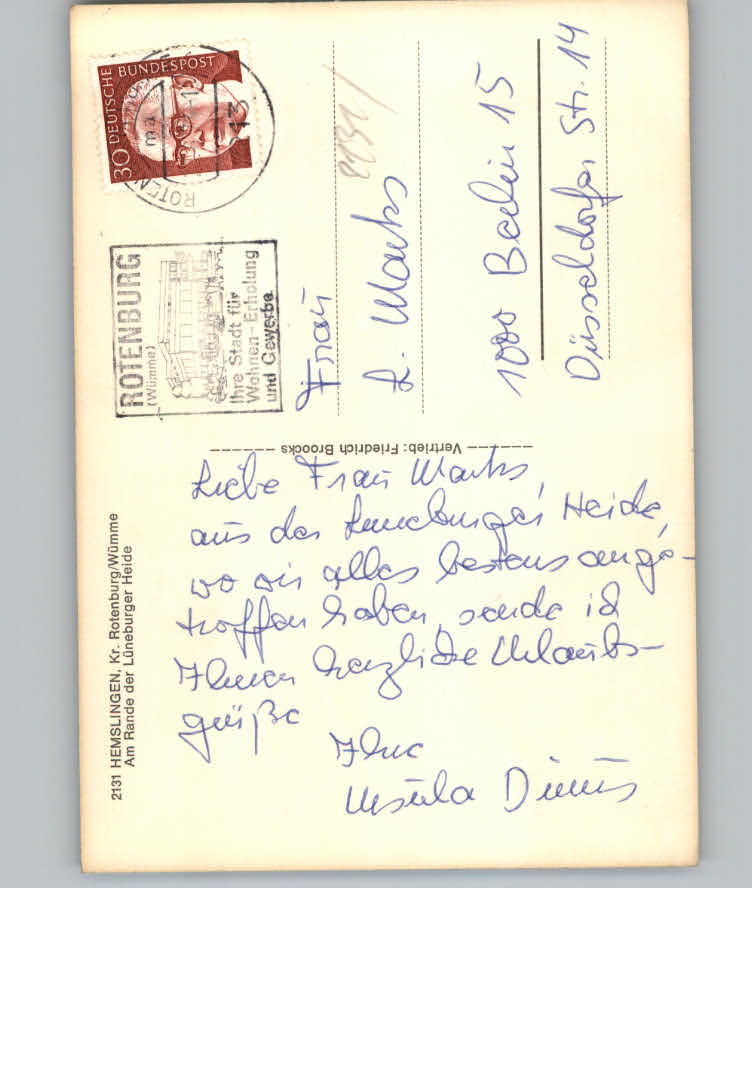 2131 HEMSLINGEN, Kr. Rotenburg/Wümme
Am Rande der Lüneburger Heide
Liebe Frau Marks,
aus der Lüneburger Heide,
wo wir alles bestens ange-
troffen haben, sende ich
Ihnen herzliche Urlaubs-
grüße
Ihre
Ursula
Vertrieb: Friedrich Broocks
DEUTSCHE BUNDESPOST
30
ROTENBURG
(Wümme)
Ihre Stadt für
Wohnen-Erholung
und Gewerbe
2131
Frau
L. Marks
1000 Berlin 15
Düsseldorfer Str. 14